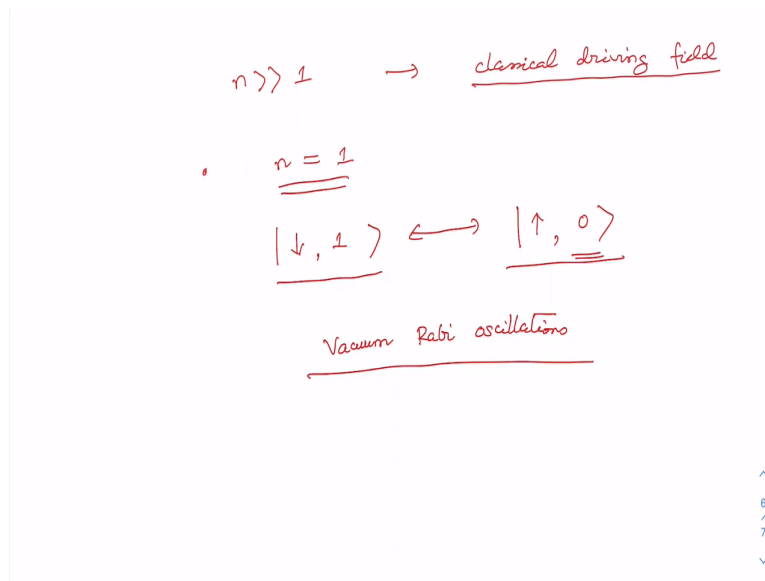 n >> 1 → classical driving field
• n = 1
|↓, 1⟩ ↔ |↑, 0⟩
Vacuum Rabi oscillations
6
7